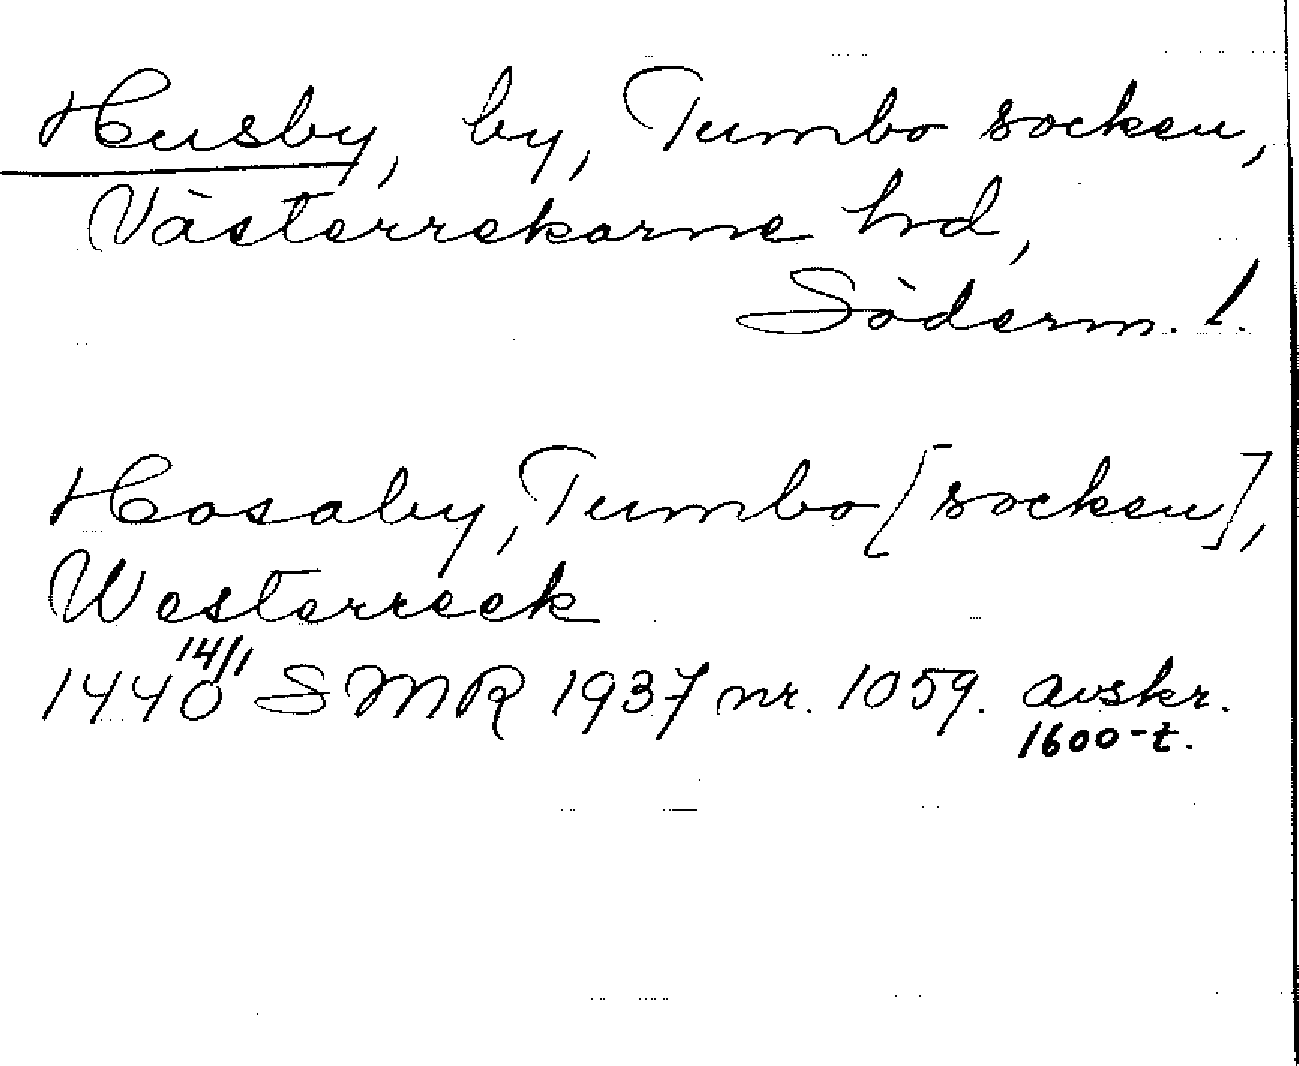 Husby, by, Tumbo socken,
Västerrekarne hrd,
Söderm. l.
Hosaby, Tumbo [socken],
Westerreek
1440 14/1 SMR 1937 nr. 1059. avskr.
1600-t.